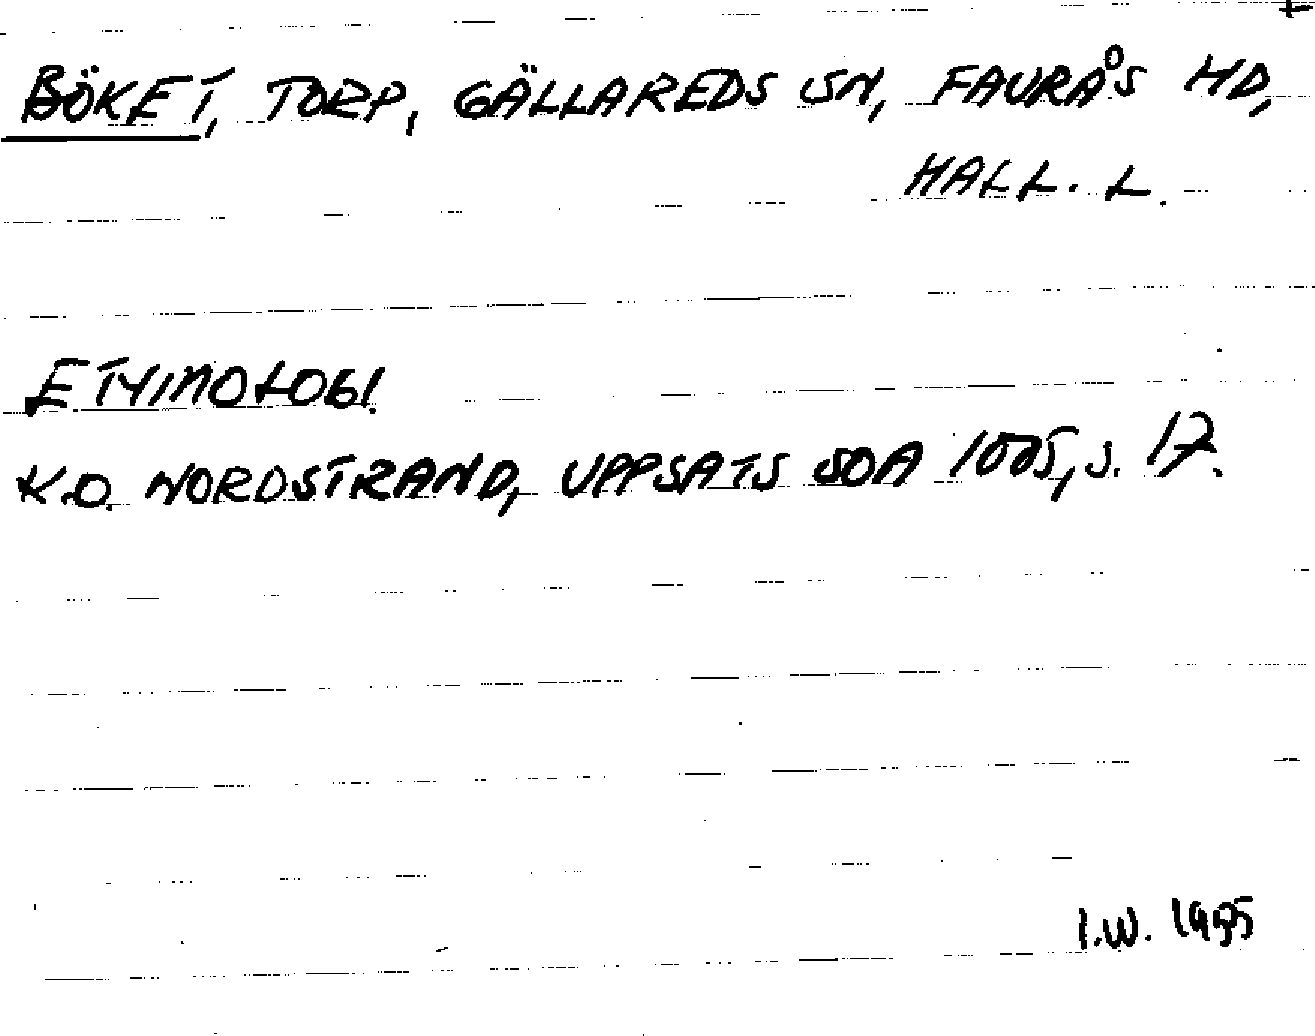 BÖKET, TORP, GÄLLAREDS SN, FAURÅS HD,
HALL. L.
ETYIMOLOGI.
K.O. NORDSTRAND, UPPSATS SOA 1005, S. 17.
I.W. 1995